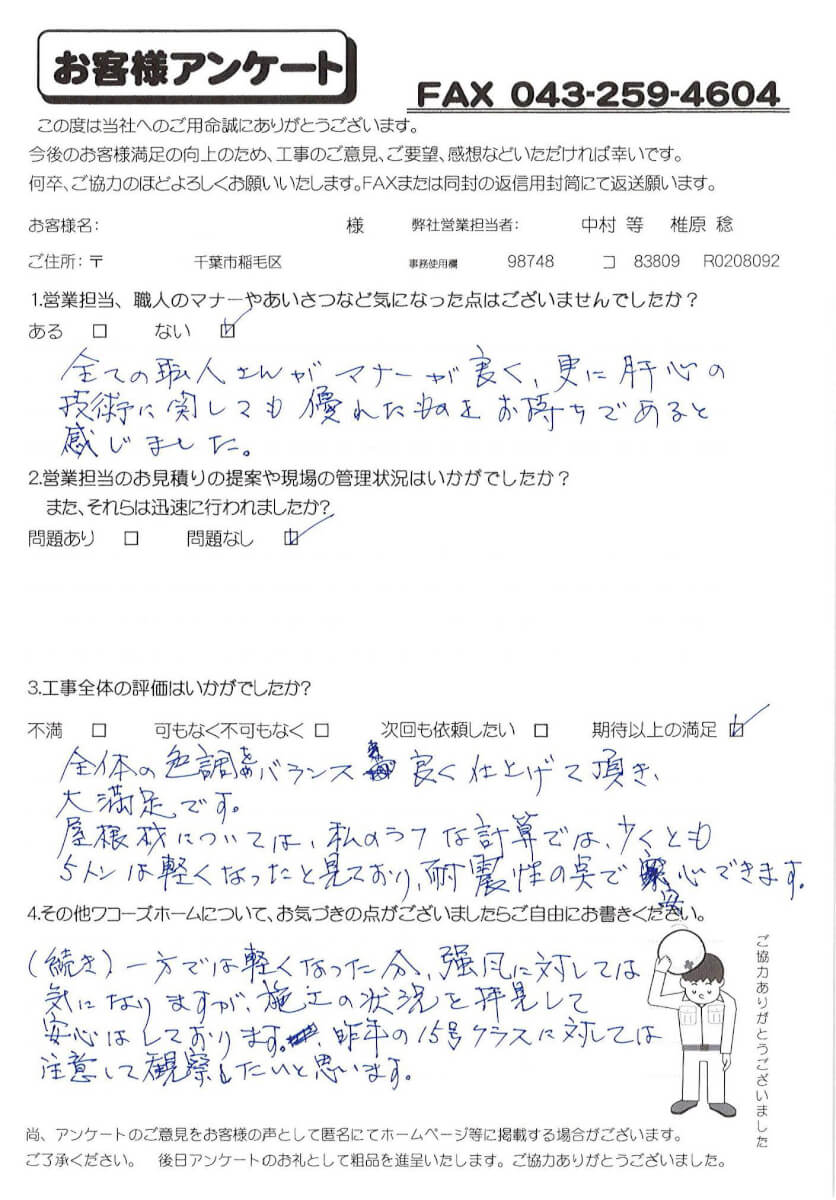 お客様アンケート
FAX 043-259-4604
この度は当社へのご用命誠にありがとうございます。
今後のお客様満足の向上のため、工事のご意見、ご要望、感想などいただければ幸いです。
何卒、ご協力のほどよろしくお願いいたします。FAXまたは同封の返信用封筒にて返送願います。
お客様名: 様 弊社営業担当者: 中村 等 椎原 稔
ご住所:〒 千葉市稲毛区 事務使用欄 98748 コ 83809 R0208092
1.営業担当、職人のマナーやあいさつなど気になった点はございませんでしたか?
ある □ ない ☑
全ての職人さんがマナーが良く、更に肝心の
技術に関しても優れたものをお持ちであると
感じました。
2.営業担当のお見積りの提案や現場の管理状況はいかがでしたか?
また、それらは迅速に行われましたか?
問題あり □ 問題なし ☑
3.工事全体の評価はいかがでしたか?
不満 □ 可もなく不可もなく □ 次回も依頼したい □ 期待以上の満足 ☑
全体の色調をめバランス良く仕上げて頂き、
大満足です。
屋根材については、私のラフな計算では、少くとも
5トンは軽くなったと見ており、耐震性の点で安心できます。
4.その他ワコーズホームについて、お気づきの点がございましたらご自由にお書きください。
(続き)一方では軽くなった分、強風に対しては
気になりますが、施工の状況を拝見して
安心はしております。昨年の15号クラスに対しては
注意して観察したいと思います。
ご協力ありがとうございました
尚、アンケートのご意見をお客様の声として匿名にてホームページ等に掲載する場合がございます。
ご了承ください。 後日アンケートのお礼として粗品を進呈いたします。ご協力ありがとうございました。